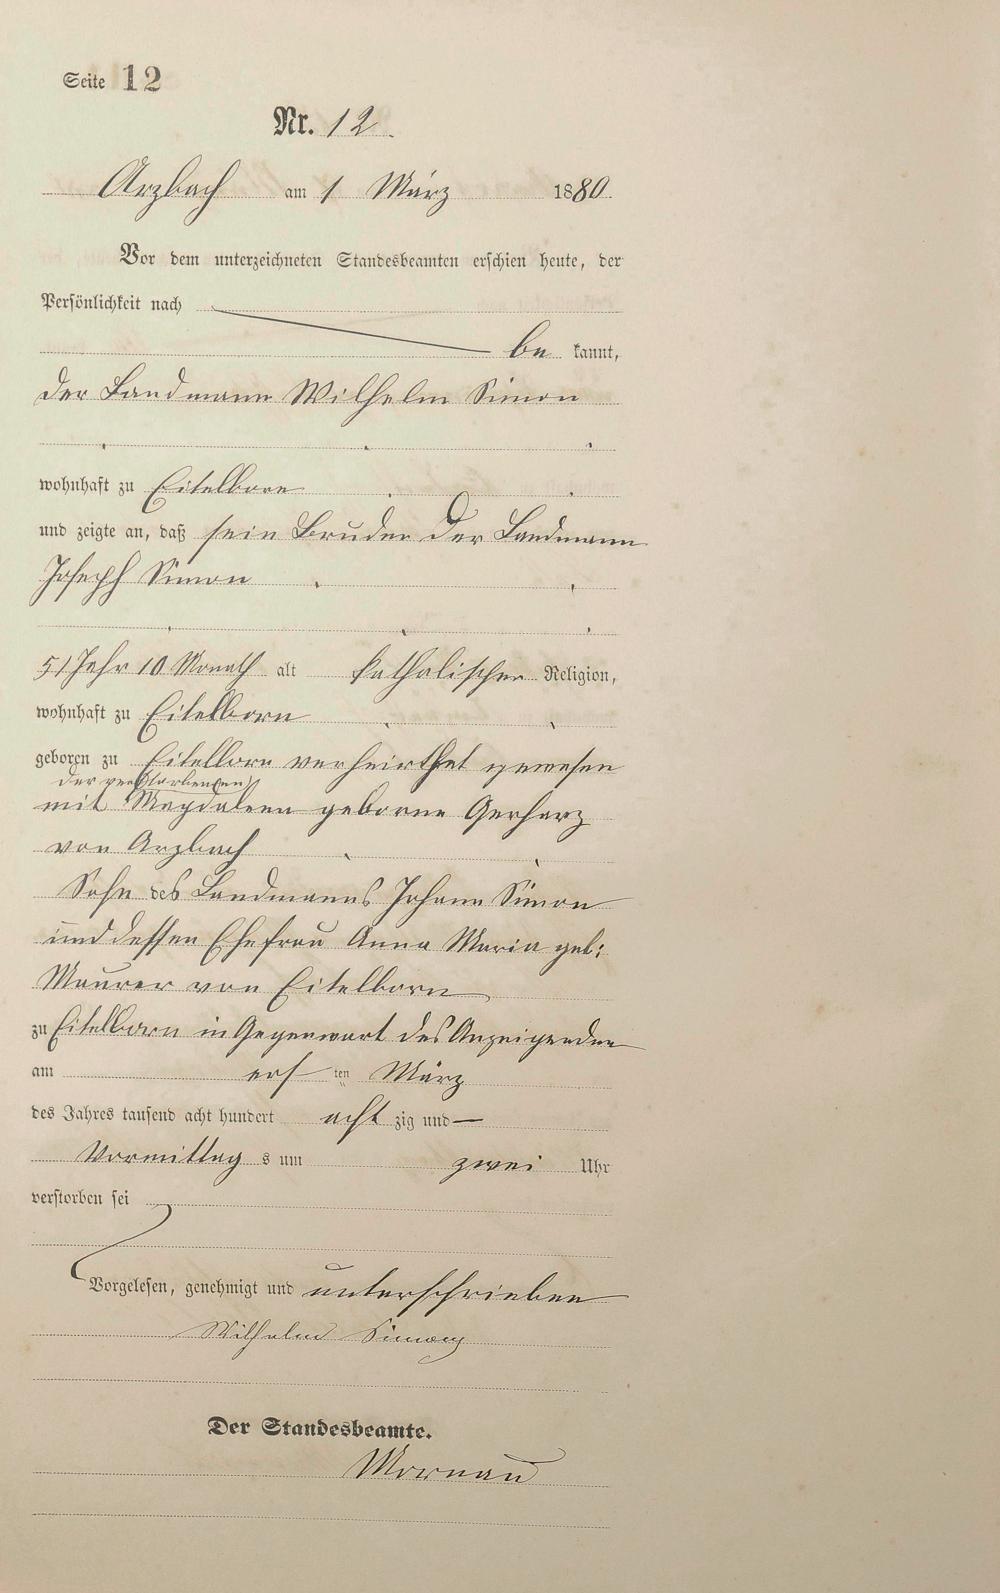 Seite 12
Nr. 12.
Arzbach am 1 März 1880.
Vor dem unterzeichneten Standesbeamten erschien heute, der
Persönlichkeit nach
be kannt,
der Landmann Wilhelm Simon
wohnhaft zu Eitelborn
und zeigte an, daß sein Bruder Der Landmann
Joseph Simon
51 Jahr 10 Monath alt katholischer Religion,
wohnhaft zu Eitelborn
geboren zu Eitelborn verheirthet gewesen
der verstorbenen
mit Magdalena geborne Gerharz
von Arzbach
Sohn des Landmanns Johann Simon
und dessen Ehefrau Anna Maria geb:
Maurer von Eitelborn
zu Eitelborn in Gegenwart des Anzeigenden
am ersten März
des Jahres tausend acht hundert acht zig und —
Vormittag s um zwei Uhr
verstorben sei
Vorgelesen, genehmigt und unterschrieben
Wilhelm Simon
Der Standesbeamte.
Mornau